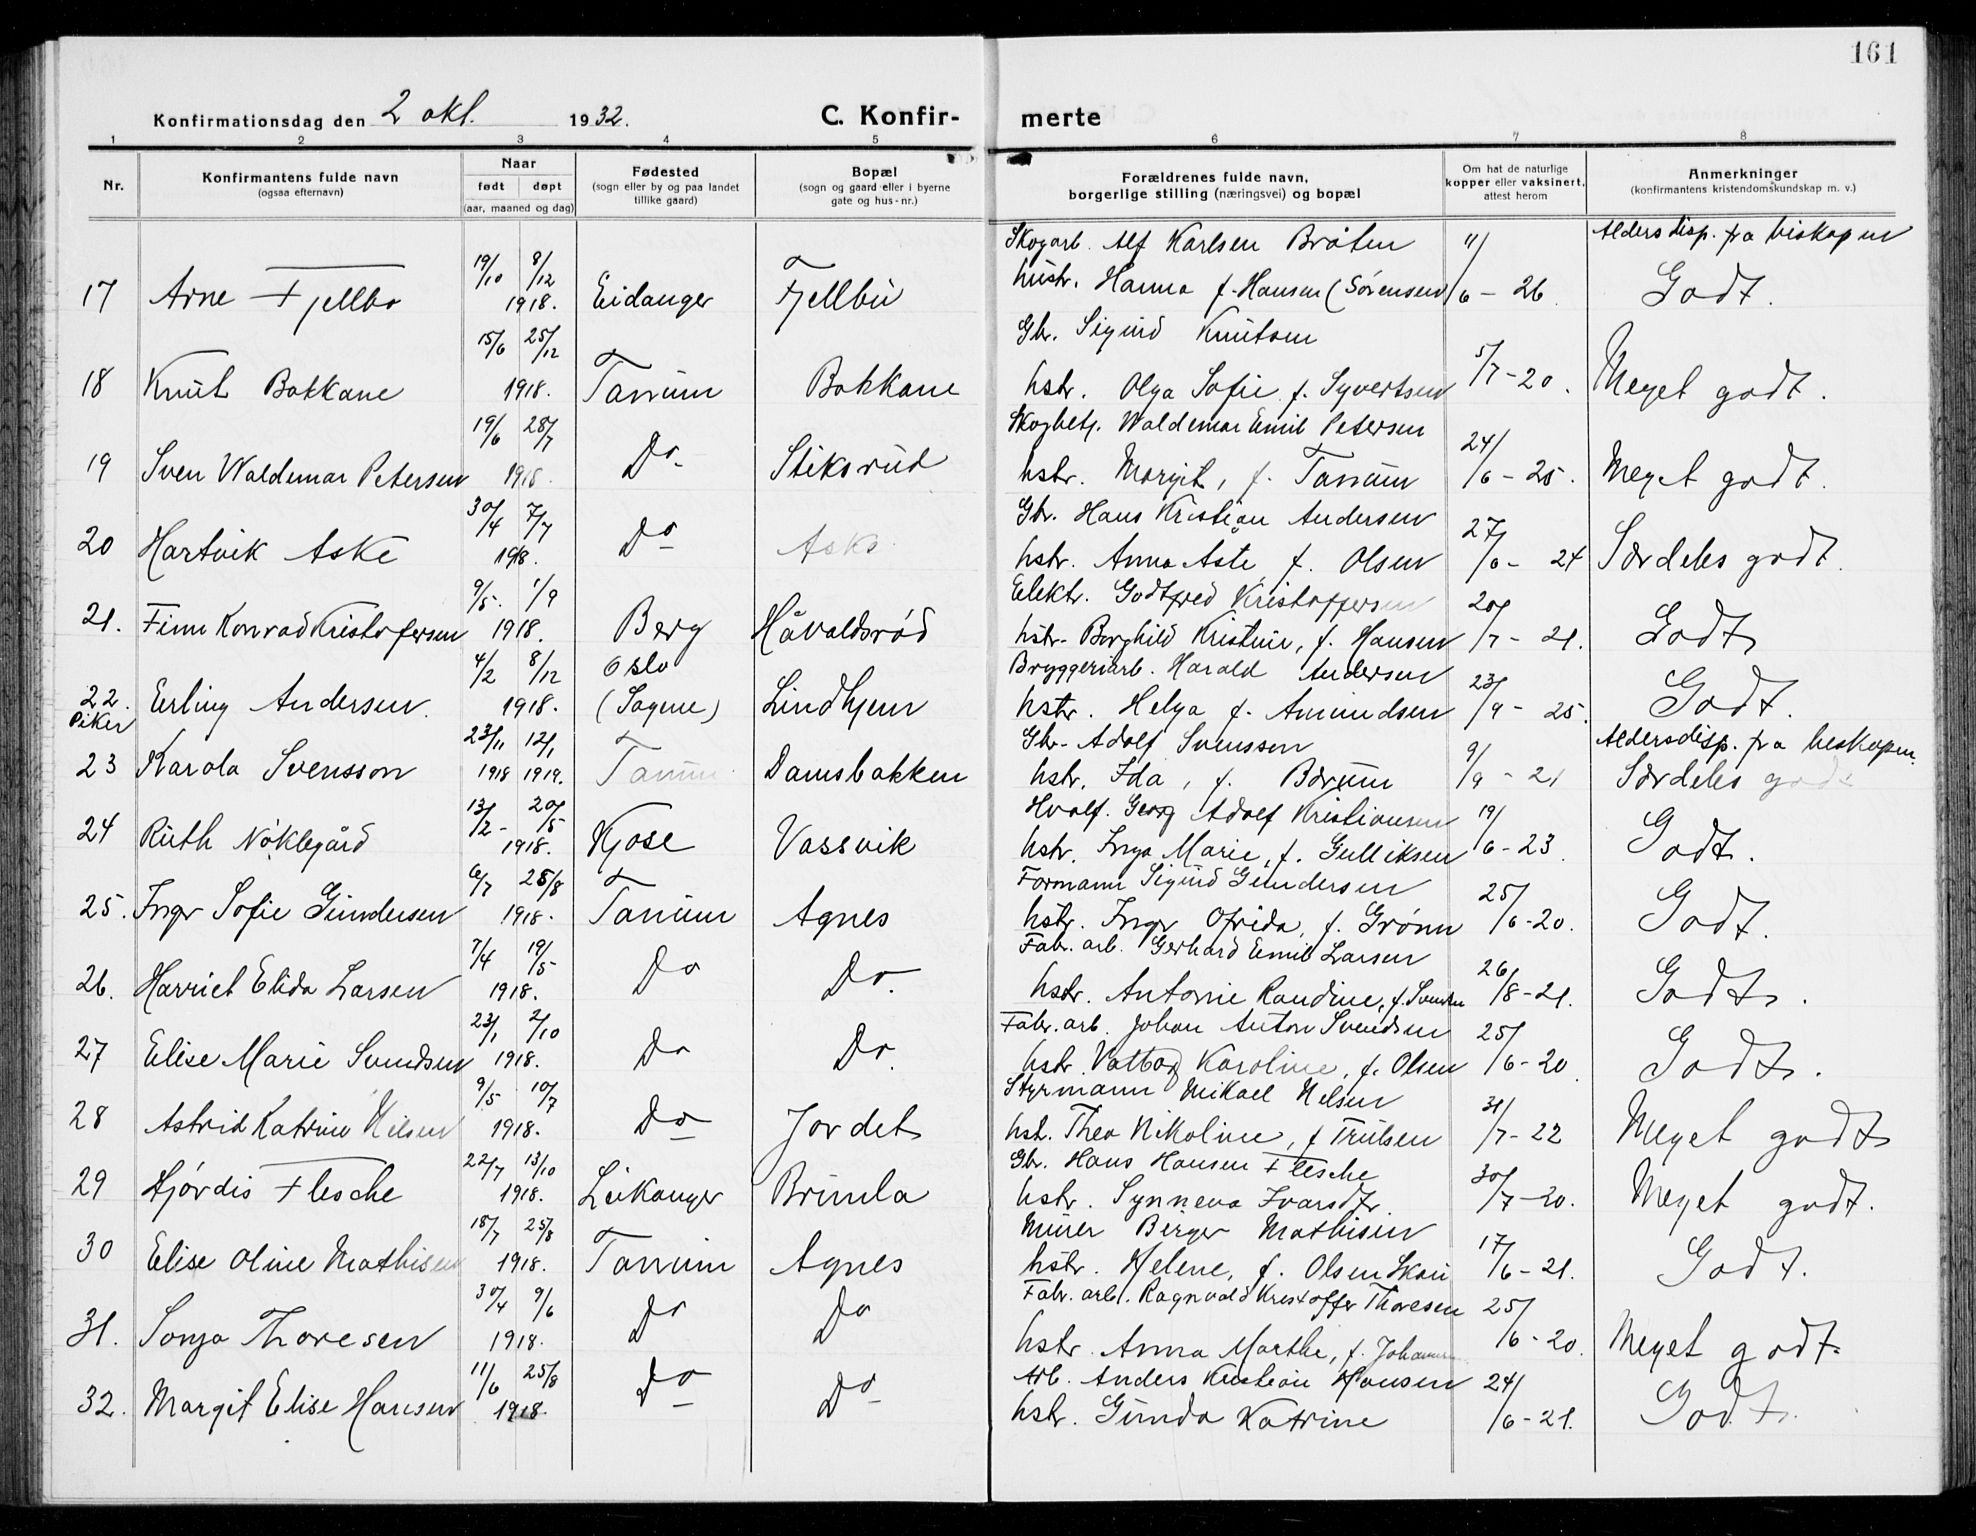 161
Konfirmationsdag den 2 okt. 1932. C. Konfir- merte
1 2 3 4 5 6 7 8
Nr. Konfirmantens fulde navn (ogsaa efternavn) Naar født døpt (aar, maaned og dag) Fødested (sogn eller by og paa landet tillike gaard) Bopæl (sogn og gaard eller i byerne gate og hus-nr.) Forældrenes fulde navn, borgerlige stilling (næringsvei) og bopæl Om hat de naturlige kopper eller vaksinert, attest herom Anmerkninger (konfirmantens kristendomskundskap m. v.)
19/10 8/12 Skogarb. Alf Karlsen Bråten 11/ Aldersdisp. fra biskopen
17 Arne Fjellbo 1918. Eidanger Fjellbu hustr. Hanna f. Hansen (Sørensen) 6 - 26. Godt.
15/6 25/12 Gbr. Sigurd Knutsen
18 Knut Bakkane 1918. Tanum Bakkane hstr. Olga Sofie f. Syvertsen 5/7 - 20. Meget godt.
19/6 28/7 Skogbetj. Waldemar Emil Petersen
19 Sven Waldemar Petersen 1918. Do. Stiksrud hstr. Margit, f. Tanum 24/6 - 25. Meget godt.
30/4 7/7 Gbr. Hans Kristian Andersen
20 Hartvik Aske 1918. Do Aske hstr. Anna Aste f. Olsen 27/6 - 24 Særdeles godt.
9/5. 1/9 Elektr. Godtfred Kristoffersen
21. Finn Konrad Kristofersen 1918. Berg Håvaldsrød hstr. Borghild Kristine, f. Hansen 20/7 - 21. Godt
4/2 8/12 Oslo Bryggeriarb. Harald Andersen
22. Erling Andersen. 1918. (Sagene) Lindhjem hstr. Helga f. Amundsen 23/9 - 25. Godt.
Piker
23/11 12/1 Gbr. Adolf Svensson Aldersdisp. fra biskopen.
23 Karola Svensson 1918 1919. Tanum Damsbakken hstr. Ida, f. Bærum 9/9 - 21 Særdeles godt
13/2 - 20/5 Hvalf. Georg Adolf Kristiansen
24 Ruth Nøklegård 1918. Kjose Vassvik hstr. Inga Marie, f. Gulliksen 19/6 - 23. Godt.
6/7 25/8 Formann Sigurd Gundersen
25. Inger Sofie Gundersen 1918. Tanum Agnes hstr. Inger Ofrida, f. Grønn 25/6 - 20. Godt.
7/4 19/5 Fabr. arb. Gerhard Emil Larsen
26. Harriet Elida Larsen 1918. Do Do. hstr. Antonie Randine, f. 26/8 - 21. Godt.
23/1 2/10 Fabr. arb. Johan Anton Svendsen
27 Elise Marie Svendsen 1918. Do Do. hstr. Valborg Karoline, f. Olsen 25/6 - 20. Godt.
9/5 10/7 Styrmann Mikael Nilsen
28 Astrid Katrine Nilsen 1918. Do Jordet hst. Thea Nikoline, f. Trulsen 31/7 - 22 Meget godt
22/7 13/10 Gbr. Hans Hansen Flesche
29 Hjørdis Flesche 1918. Leikanger Brunla hstr. Synneva Ivarsdtr. 30/7 - 20. Meget godt.
18/7 25/8 Murer Birger Mathisen
30 Elise Oline Mathisen 1918. Tanum Agnes hstr. Helene, f. Olsen Skau 17/6 - 21. Godt.
30/4 9/6 Fabr. arb. Ragnvald Kristoffer Thoresen
31. Sonja Thoresen 1918. Do Do hstr. Anna Marthe, f. 25/6 - 20. Meget godt.
11/6 25/8 Arb. Anders Kristian Hansen
32. Margit Elise Hansen 1918. Do Do hstr. Gunda Katrine 24/6 - 21. Godt.